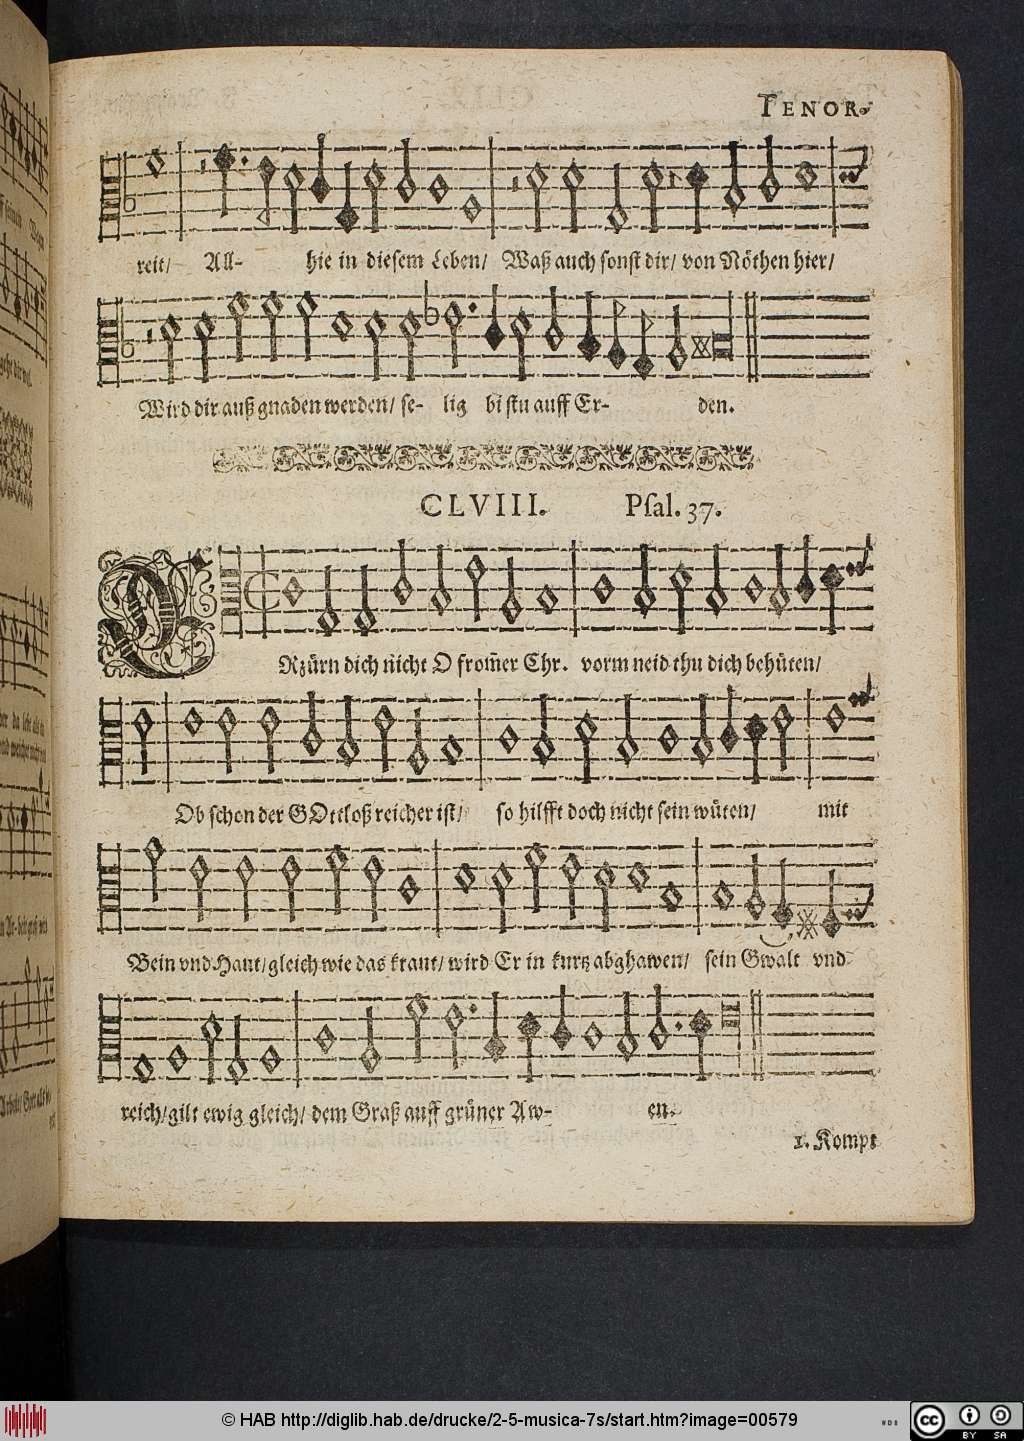 TENOR.
reit/ All- hie in diesem Leben/ Waß auch sonst dir/ von Nöthen hier/
Wird dir auß gnaden werden/ se- lig bistu auff Er- den.
CLVIII. Psal. 37.
ERzürn dich nicht O from̃er Chr. vorm neid thu dich behüten/
Ob schon der GOttloß reicher ist/ so hilfft doch nicht sein wüten/ mit
Bein vnd Haut/ gleich wie das kraut/ wird Er in kurtz abghawen/ sein Gwalt vnd
reich/ gilt ewig gleich/ dem Graß auff grüner Aw- en.
1. Kompt
© HAB http://diglib.hab.de/drucke/2-5-musica-7s/start.htm?image=00579
WDB
cc BY SA